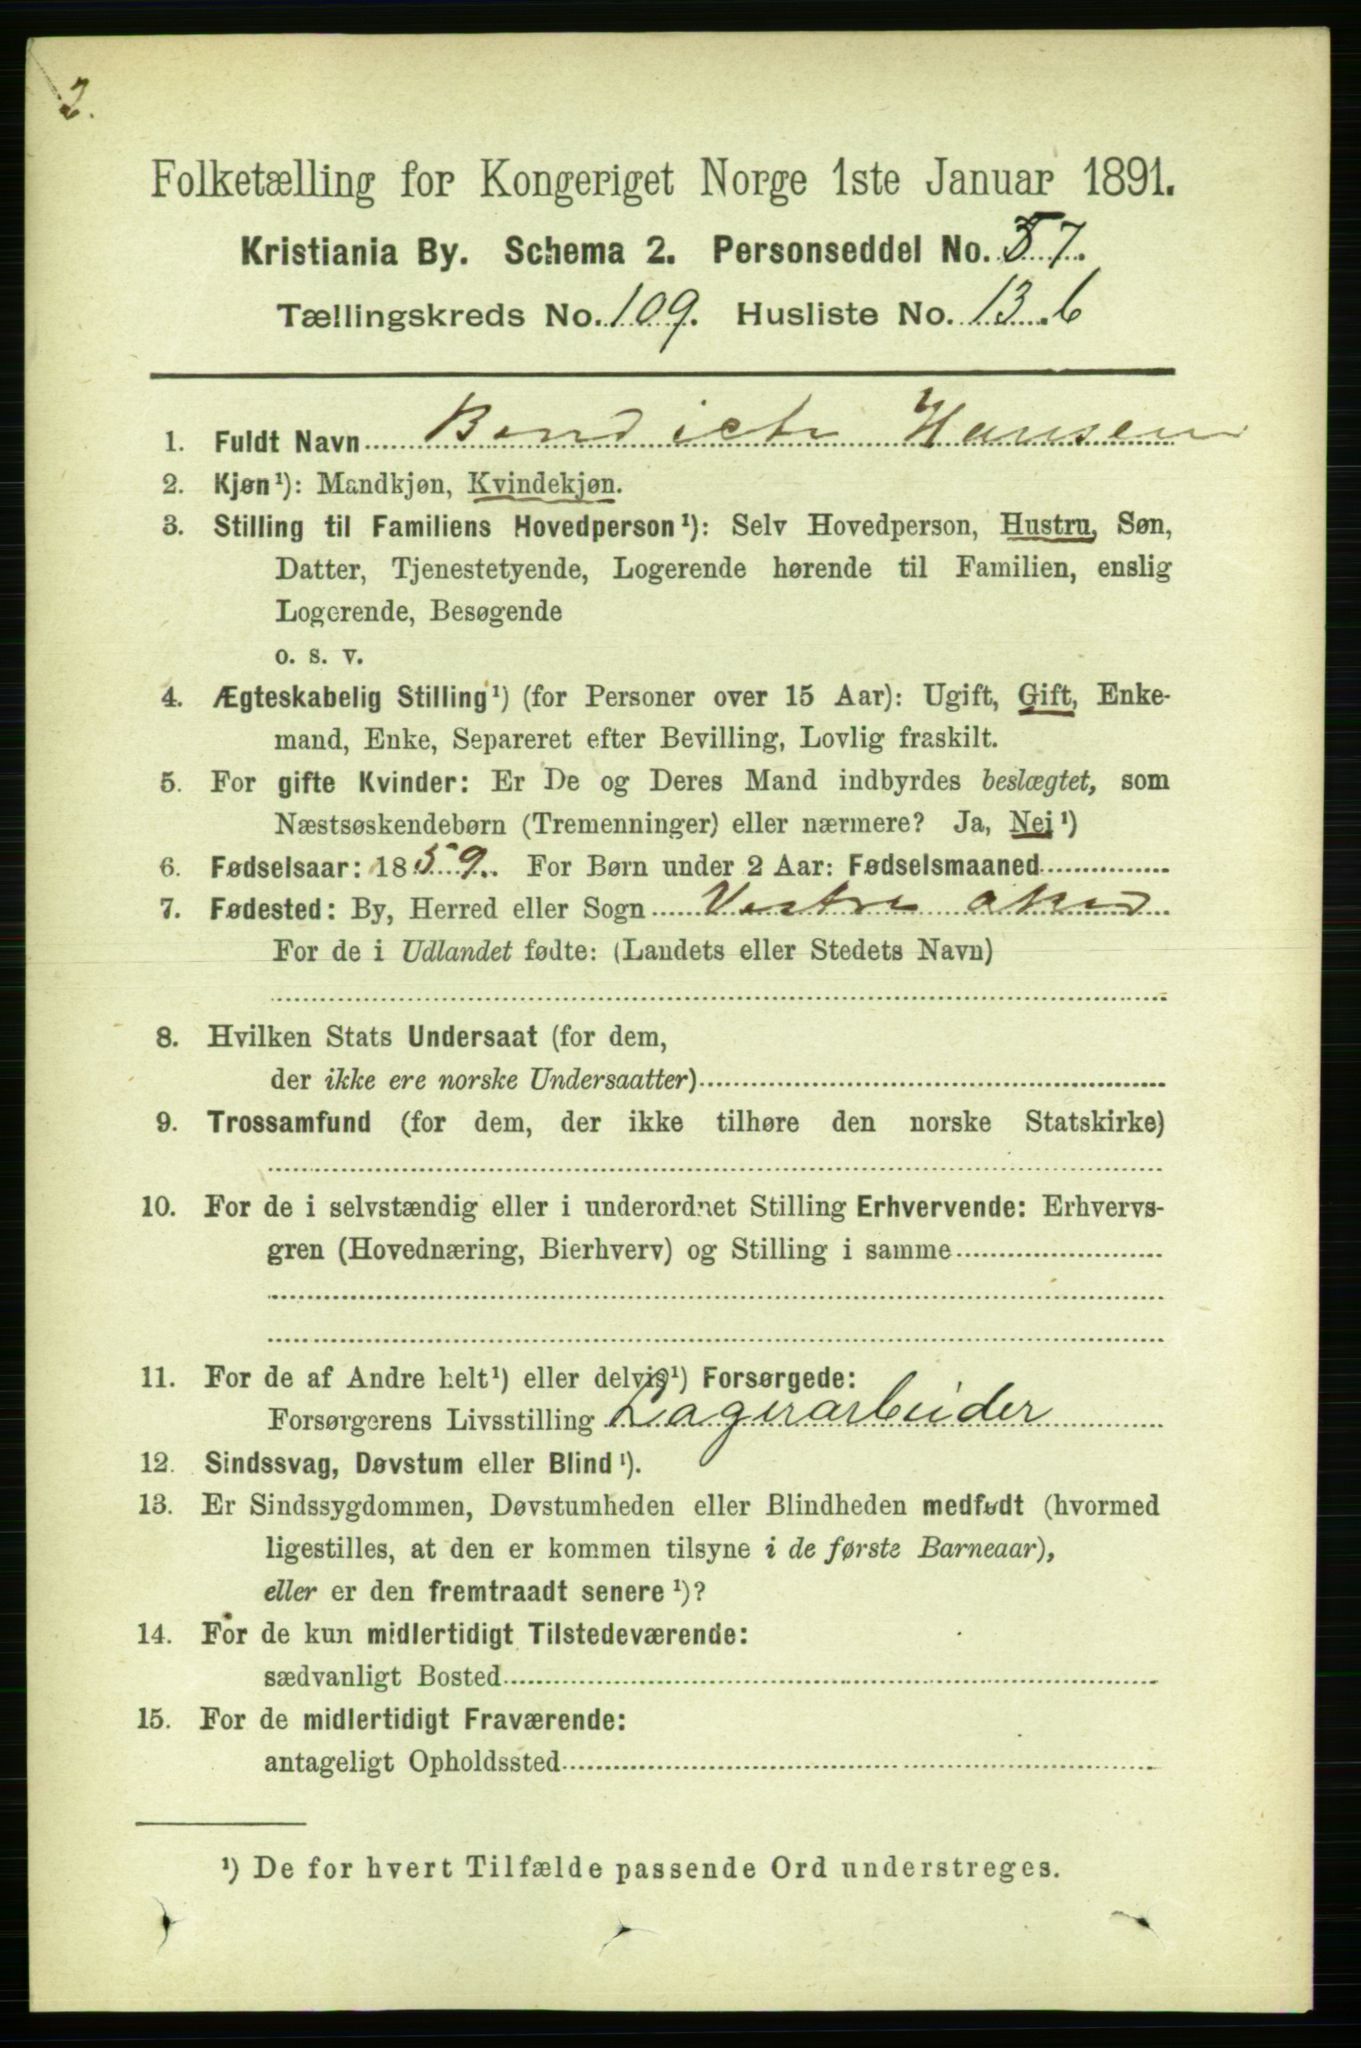 2.
Folketælling for Kongeriget Norge 1ste Januar 1891.
Kristiania By. Schema 2. Personseddel No. 57.
Tællingskreds No. 109. Husliste No. 13.6
1. Fuldt Navn Bendicte Hansen
2. Kjøn¹): Mandkjøn, Kvindekjøn.
3. Stilling til Familiens Hovedperson¹): Selv Hovedperson, Hustru, Søn,
Datter, Tjenestetyende, Logerende hørende til Familien, enslig
Logerende, Besøgende
o. s. v.
4. Ægteskabelig Stilling¹) (for Personer over 15 Aar): Ugift, Gift, Enke-
mand, Enke, Separeret efter Bevilling, Lovlig fraskilt.
5. For gifte Kvinder: Er De og Deres Mand indbyrdes beslægtet, som
Næstsøskendebørn (Tremenninger) eller nærmere? Ja, Nej¹)
6. Fødselsaar: 1859. For Børn under 2 Aar: Fødselsmaaned
7. Fødested: By, Herred eller Sogn Vestre Aker
For de i Udlandet fødte: (Landets eller Stedets Navn)
8. Hvilken Stats Undersaat (for dem,
der ikke ere norske Undersaatter)
9. Trossamfund (for dem, der ikke tilhøre den norske Statskirke)
10. For de i selvstændig eller i underordnet Stilling Erhvervende: Erhvervs-
gren (Hovednæring, Bierhverv) og Stilling i samme
11. For de af Andre helt¹) eller delvis¹) Forsørgede:
Forsørgerens Livsstilling Lagerarbeider
12. Sindssvag, Døvstum eller Blind¹).
13. Er Sindssygdommen, Døvstumheden eller Blindheden medfødt (hvormed
ligestilles, at den er kommen tilsyne i de første Barneaar),
eller er den fremtraadt senere¹)?
14. For de kun midlertidigt Tilstedeværende:
sædvanligt Bosted
15. For de midlertidigt Fraværende:
antageligt Opholdssted
¹) De for hvert Tilfælde passende Ord understreges.